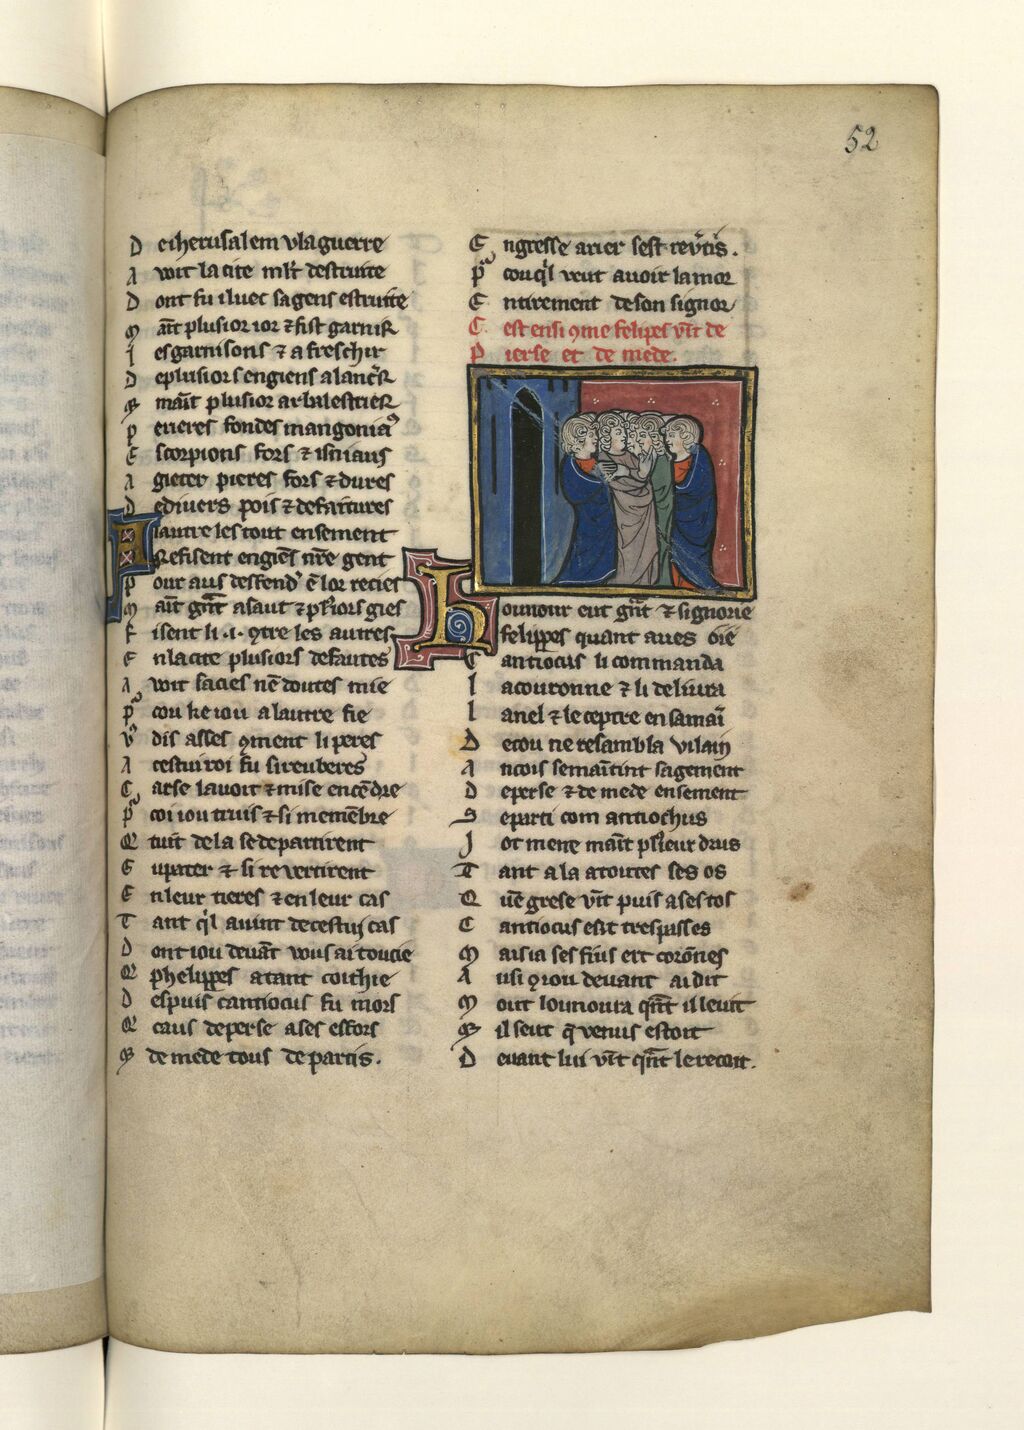 52
D eiherusalem v la guerre
A voit la cite mlt destruite
D ont fu iluec sa gens estruite
M ait plusior ior ⁊ fist garnir
l es garnisons ⁊ a freschir
D e plusiors engiens a lancer
M ait plusior arbalestrier
P erieres fondes mangoniaus
E scorpions fors ⁊ isniaus
A gieter pieres fors ⁊ dures
D e divers pois ⁊ de faitures
lautre les tout ensement
Refisent engiens nre gent
P our aus desfendre
M ait grant asaut ⁊
F isent li .i. ꝯtre les autres
E n la cite plusiors defautes
A voit
P cou ke iou a lautre fie
V dis asses ꝯment li peres
A cestui roi fu si reuberes
C arse lavoit ⁊ mise encendre
P coi iou truis ⁊ si memenbre
Q tuit de la se departirent
E upater ⁊ li revertirent
E n leur tieres ⁊ en leur cas
T ant ql avint de cestui cas
D ont iou devant vous ai toucie
Q phelippes atant coithie
D espuis cantiocus fu mors
Q caus de perse a ses esfors
de mede tous de partis.
E ngresse arier sest
P cou ql veut avoir lamor
E ntirement de son signor
C est ensi ꝯme felipes vint de
P ierse et de mede.
hounour eut grant ⁊ signorie
felippes quant aves oie
C antiocus li commanda
l a couronne ⁊ li delivra
l anel ⁊ le ceptre en sa main
D e cou ne resambla vilain
A ncois se maintint sagement
D e perse ⁊ de mede ensement
S e parti com antiochus
J ot mene maint plseur drus
T ant ala a toutes ses os
Q uen grese vint puis a ses tos
C antiocus est trespasses
M ais ia ses fius ert corones
A usi ꝯ iou devant ai dit
M out lounoura quant il le vit
il seut q venus estoit
D evant lui vint quant le recoit.